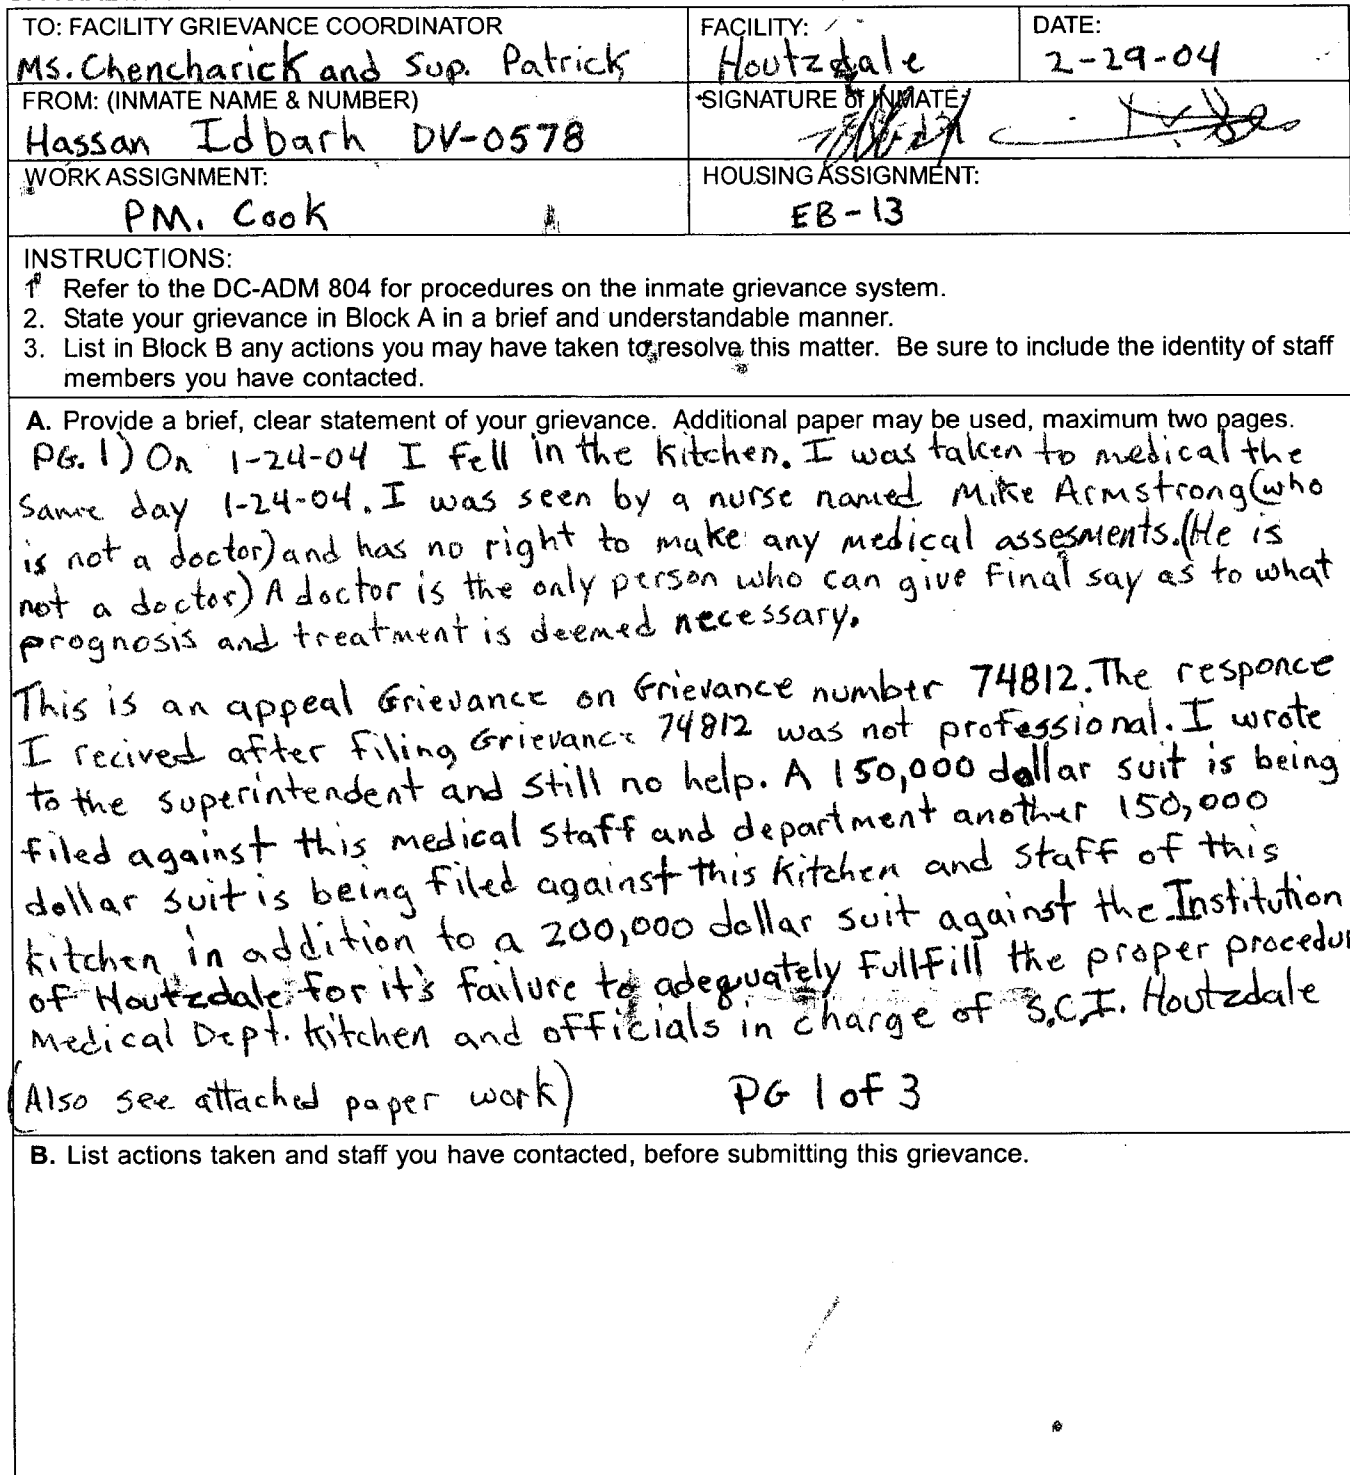 TO: FACILITY GRIEVANCE COORDINATOR
Ms. Chencharick and Sup. Patrick
FACILITY:
Houtzdale
DATE:
2-29-04
FROM: (INMATE NAME & NUMBER)
Hassan Idbarh DV-0578
SIGNATURE of INMATE:
WORK ASSIGNMENT:
PM. Cook
HOUSING ASSIGNMENT:
EB-13
INSTRUCTIONS:
1. Refer to the DC-ADM 804 for procedures on the inmate grievance system.
2. State your grievance in Block A in a brief and understandable manner.
3. List in Block B any actions you may have taken to resolve this matter. Be sure to include the identity of staff
members you have contacted.
A. Provide a brief, clear statement of your grievance. Additional paper may be used, maximum two pages.
PG. 1) On 1-24-04 I fell in the kitchen. I was taken to medical the
same day 1-24-04. I was seen by a nurse named Mike Armstrong (who
is not a doctor) and has no right to make any medical assesments. (He is
not a doctor) A doctor is the only person who can give final say as to what
prognosis and treatment is deemed necessary.
This is an appeal Grievance on Grievance number 74812. The responce
I recived after filing Grievance 74812 was not professional. I wrote
to the superintendent and still no help. A 150,000 dollar suit is being
filed against this medical staff and department another 150,000
dollar suit is being filed against this kitchen and staff of this
kitchen in addition to a 200,000 dollar suit against the Institution
of Houtzdale for it's failure to adequately fullfill the proper procedur
Medical Dept. kitchen and officials in charge of S.C.I. Houtzdale
(Also see attached paper work) PG 1 of 3
B. List actions taken and staff you have contacted, before submitting this grievance.